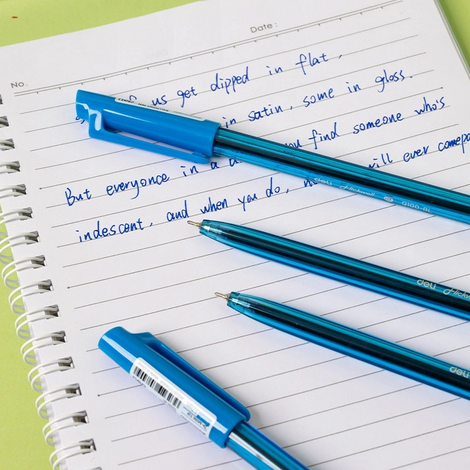 No.
Date:
f us get dipped in flat,
in satin, some in gloss.
But everyonce in a you find someone who's
indescent, and when you do, will ever compa
deli
Q100-BL
deli
deli